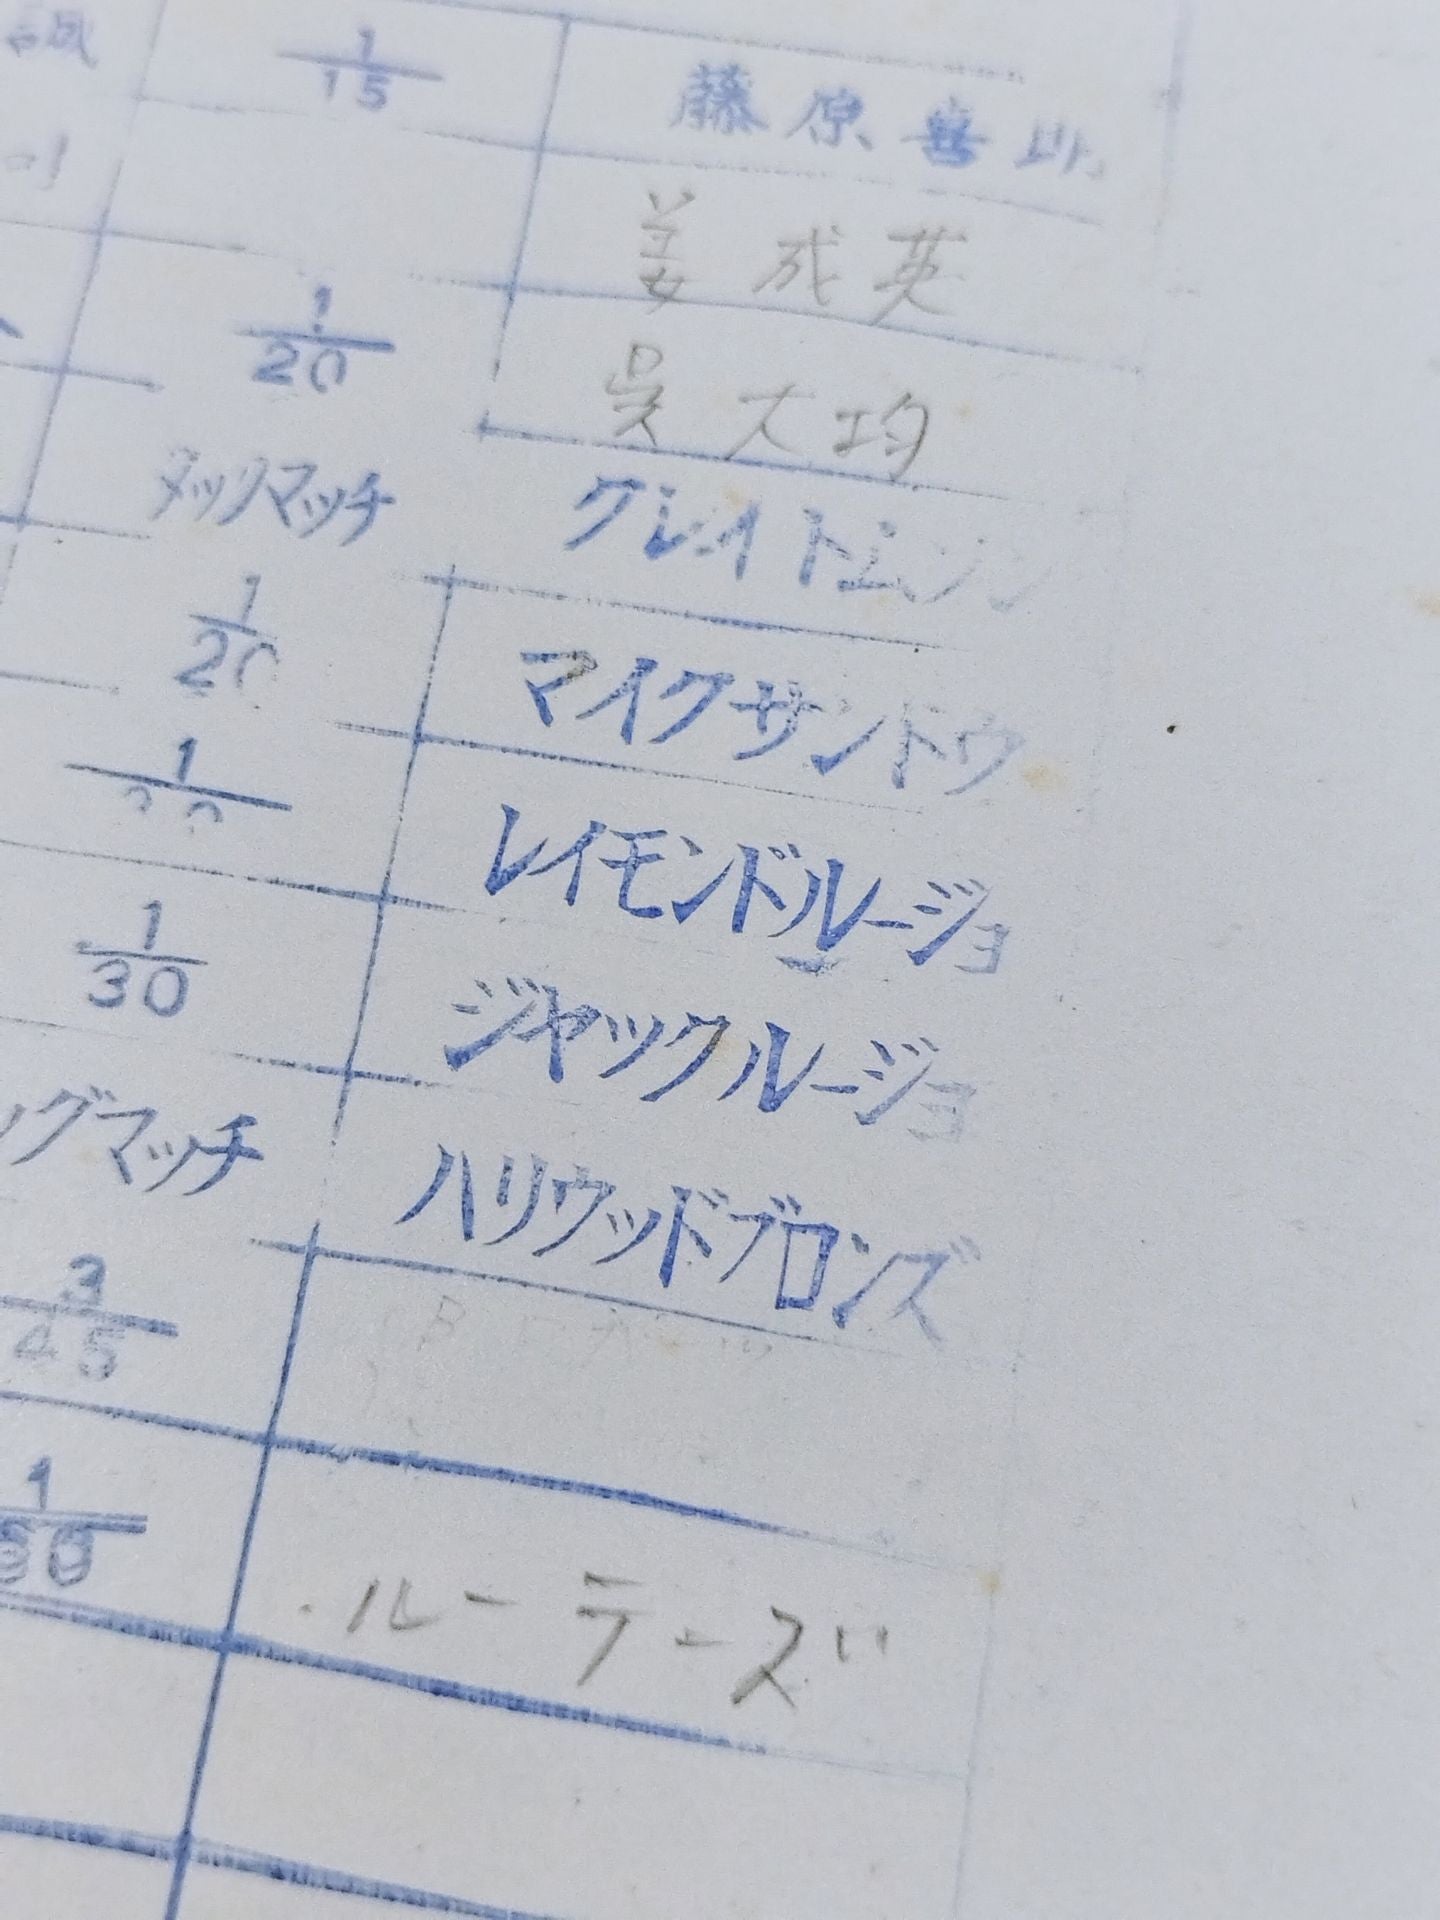 1/15 藤原喜
姜成英
1/20 呉大均
タッグマッチ グレイトムソン
1/20 マイクサンドウ
1 レイモンドルージョ
1/30 ジャックルージョ
グマッチ ハリウッドブロンズ
3/45
1/60 ルーテーズ